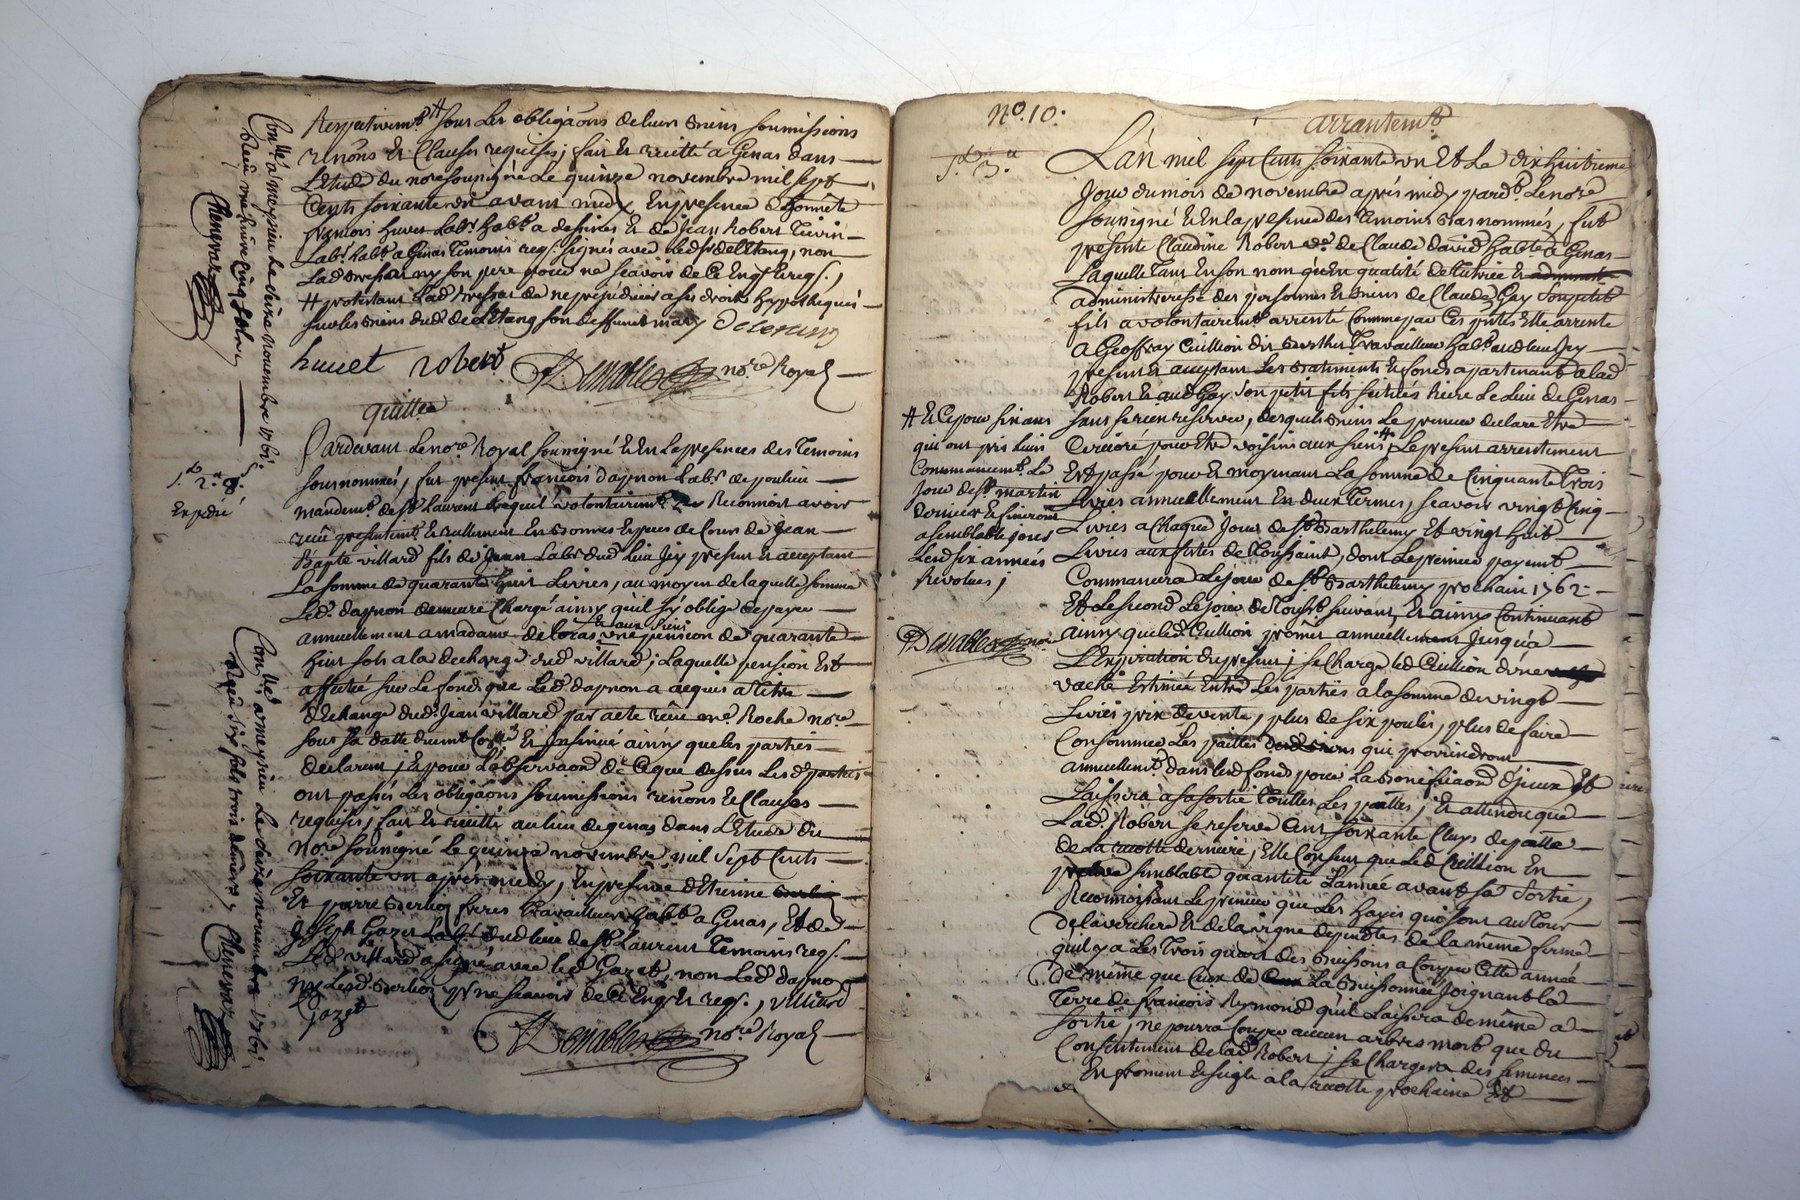 Respectivemt. # sous les obligaôns de leurs Biens soumissions
renôns et Clauses requises; fait et recitté a Genas dans
L'Etude du nore. soussigné Le quinze novembre mil sept
Cents soixante un avant midy En presence d'honnete
françois huvet Labr. habt. a de Jean Robert
Labr. habt. a Genas Temoins req. signés avec Led. sr. deLetang, non
Lad. ny son pere pour ne sçavoir de Ce Enq. et req.;
# protestant Lad. de ne prejudicier a ses droits hypothequés
sur les Biens dud. de Letang son deffunt mary
huuet robert Demables nore. Royal
quittce
Pardevant Le nore. Royal soussigné et En La presences des Temoins
sousnommés, fut present françois dapnon Labr. de
mandemt. de st. Laurent Lequel volontairemt. Reconnoit avoir
reçu presentemt. et reellement En Bonnes Especes de Cours de Jean
Bapte villard fils de Jean Labr. dud. Lieu jcy present et acceptant
La somme de quarante huit Livres, au moyen de laquelle somme
Led. dapnon demeure Chargé ainsy qu'il s'y oblige de payer
et aux siens
annuellement a madame de Loras une pension de quarante
huit sols a la decharge dud. villard; Laquelle pension Est
affectée sur Le fond que Led. dapnon a acquis a titre
d'Echange dud. Jean villard par acte reçu me. Roche nore.
sous sa datte duemt. Conllé. Et Insinué ainsy que les parties
declarent; Et pour L'observaôn de Ce que dessus Les d. parties
ont passé Les obligaôns soumissions renôns et Clauses
requises, fait et recitté au lieu de genas dans L'Etude du
nore. soussigné le quinze novembre mil Sept Cents
soixante un après midy, En presence d'Etienne
Et pierre Berlioz freres Travailleurs habt. a Genas, Et de
Joseph Gazet Labr. dud. lieu de st. Laurent Temoins req.
Led. villard a signé avec led. Gazet, non Led. dapnon
ny Lesd. Berlioz pr. ne sçavoir de Ce Enq. et req., villiard
gazet
Demables nore. Royal
Conllé. a meyzieu Le novembre 1761.
Reçu
1. 2. 8.
Expedié
Conllé. a meyzieu Le novembre 1761.
Reçu six sols trois deniers
no. 10.
arrantemt.
L'an mil sept Cents soixante un Et Le dix huitieme
Jour du mois de novembre après midy pardt. Le nore.
soussigné et En la presence des Temoins Bas nommés, fut
presente Claudine Robert ve. de Claude david habte. a Genas
Laquelle Tant En son nom qu'En qualité de Tutrice et
administeresse des personnes et Biens de Claude Gay son petit
fils a volontairemt. arrenté Comme par Ces pntes Elle arrente
a Geoffray Cuillion dit Berthet Travailleur habt. aud. lieu Jcy
present et acceptant Les Batiments et fonds apartenants a lad.
Robert et aud. Gay son petit fils scitués Riere Le Lieu de Genas
sans se rien reserver, desquels Biens Le preneur declare Etre
Cerioré pour Etre voisin aux siens # Le present arrentement
Est passé pour et moyenant La somme de Cinquante Trois
Livres annuellement En deux Termes, scavoir vingt Cinq
Livres a Chaque Jour de st. Barthelemy Et vingt huit
Livres aux fetes de Toussaint, dont Le premier payemt.
Commancera Le jour de st. Barthelemy prochain 1762
Et Le second Le jour de Toussts. suivant Et ainsy Continuant
ainsy que Led. Cuillion promet annuellement Jusqu'a
L'Expiration du present; se Charge led. Cuillion d'une
vache Estimée Entre Les parties a la somme de vingt
Livres prix de vente, plus de six poules, plus de faire
Consommer Les pailles qui proviendront
annuellemt. dans lesd. fonds pour La Bonifficaôn d'jceux Et
Laissera a sa sortie Touttes Les pailles; Et attendu que
Lad. Robert se reserve Cent soixante Cluys de paille
de La recotte derniere, Elle Consent que Led. Cuillion En
semblable quantité L'année avant sa sortie,
Reconnoissant Le preneur que Les hayes qui sont au Tour
de la verchere Et de la vigne dependtes. de la même ferme
qu'il y a Les Trois quart des Buissons a Couper Cette année
De même que Ceux de La Buissonnée Joignant la
Terre de francois Reymond qu'il Laissera de même a
sortie, ne pourra Couper aucun arbres mort que du
Consentement de lad. Robert; se Chargera des semences
En froment et seigle a la recotte prochaine Et
# Et Ce pour six ans
qui ont pris Leurs
Commancemt. Le
Jour de st. martin
dernier et finiront
a semblable jour
Lesd. six années
Revolues;
Demables nore.